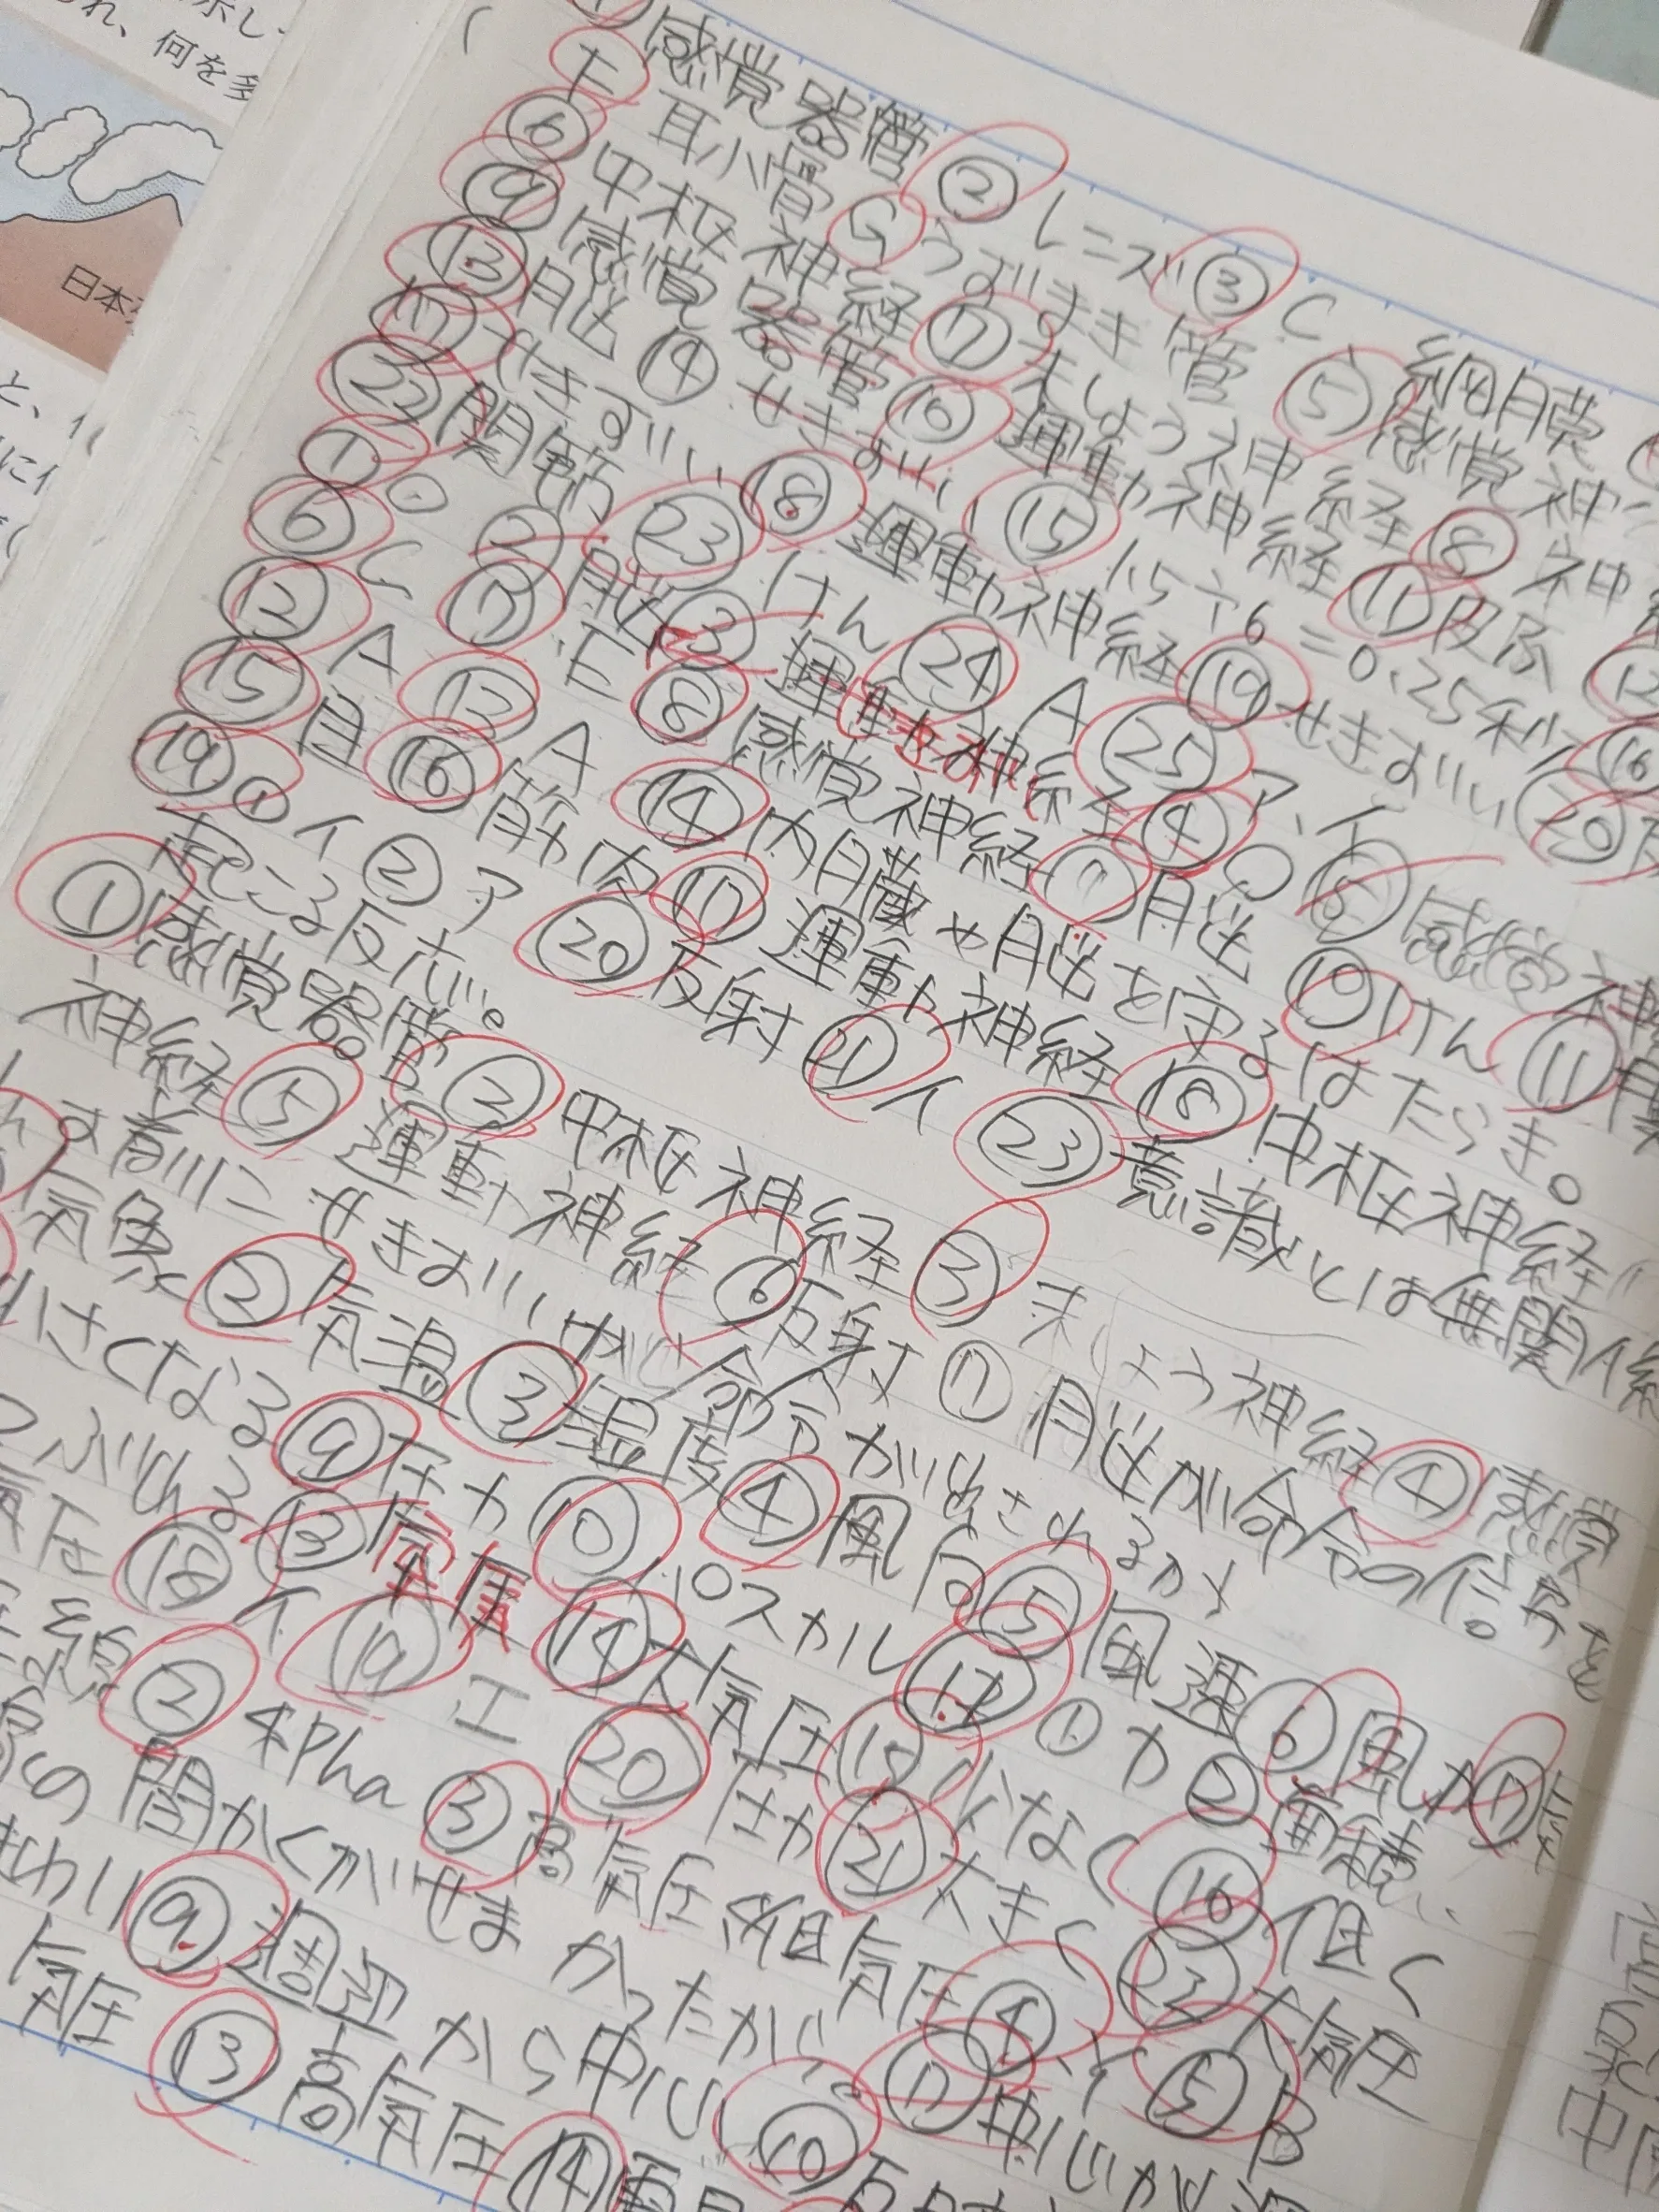 示し
れ、何を多
日本
① 感覚器管 ② レンズ ③ C、網膜
E 耳小骨 G うずまき管 ⑤ 感覚神
⑥ 中枢神経 ⑦ 末しょう神経 ⑧ 神
⑨ 感覚器管 ⑩ 運動神経 ⑪ 皮ふ ⑫
⑬ 脳 ⑭ せきずい ⑮ 1.5÷6=0.25秒 ⑯
⑰ せきずい ⑱ 運動神経 ⑲ せきずい ⑳ 反
㉒ 関節 ㉓ けん ㉔ A ㉕ ア、イ
① ○ ② 脳 ③ 運動神経 ④ ○ ⑤ 感覚神
⑥ C ⑦ E ⑧ 感覚神経 ⑨ 脳 ⑩ けん ⑪ 関
⑫ A ⑬ A ⑭ 内臓や脳を守るはたらき。
⑮ 目 ⑯ 筋肉 ⑰ 運動神経 ⑱ 中枢神経
⑲ ① イ ② ア ⑳ 反射 ㉑ イ ㉓ 意識とは無関係
起こる反応。
① 感覚器管 ② 中枢神経 ③ 末しょう神経 ④ 感覚
神経 ⑤ 運動神経 ⑥ 反射 ⑦ 脳が命令の信号を
す前に せきずいが命令がだされるから
気象 ② 気温 ③ 湿度 ④ 風向 ⑤ 風速 ⑥ 風力 ⑦
小さくなる ⑨ 圧力 ⑩ パスカル ⑫ ① 力 ② 面積
つぶれる ⑬ 気圧 ⑭ 大気圧 ⑮ 少なく ⑯ 低く
気圧 ⑱ イ ⑲ エ ⑳ 圧力 ㉑ 大きく ㉓ 大気圧
線 ② 4Pha ③ 高気圧 低気圧 ④ Y ⑤ B
の間かくがせまかったから
まわり ⑨ 周辺から中心 ⑩ ⑪ 中心から
気圧 ⑬ 高気圧 ⑭